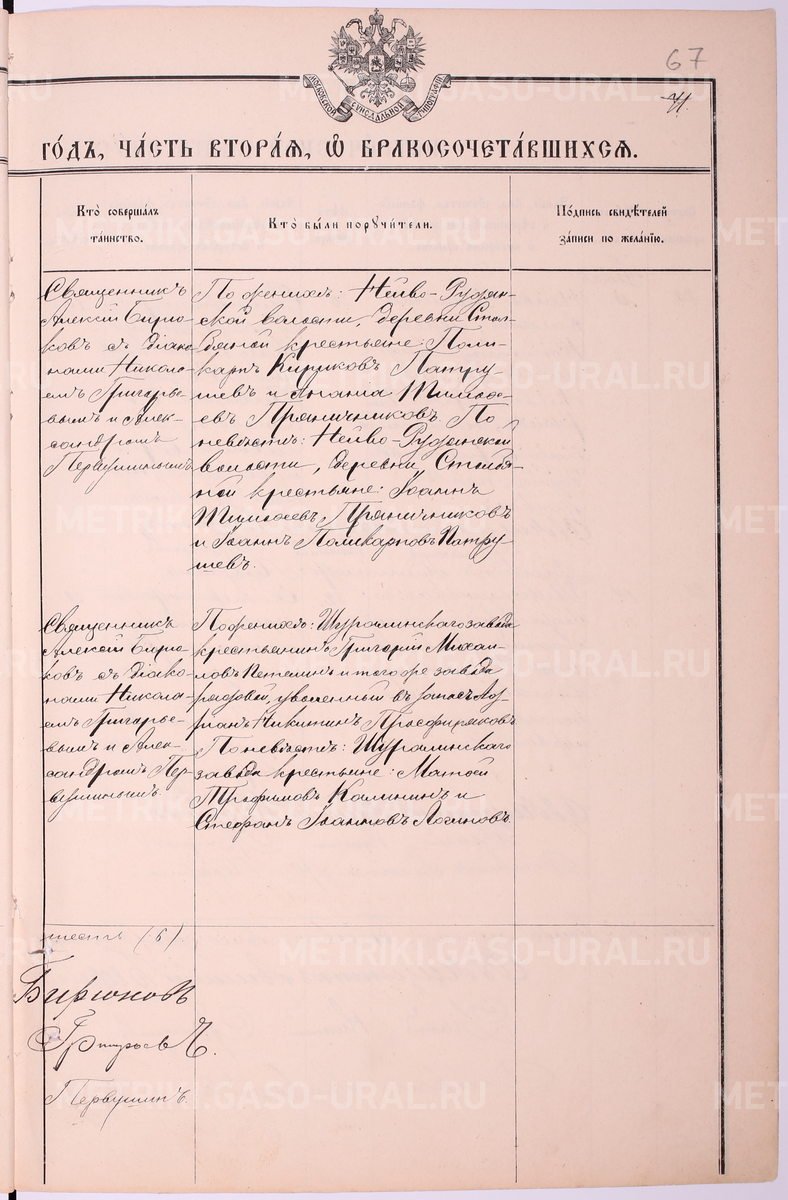 67
МОСКОВСКОЙ СѴНОДАЛЬНОЙ ТИПОГРАФІИ
71.
ГО́ДЪ, ЧА́СТЬ ВТОРА́Я, Ѡ БРАКОСОЧЕТА́ВШИХСЯ.
Кто̀ соверша́лъ
та́инство.
Кто̀ бы́ли поручи́тели.
По́дпись свидѣ́телей
за́писи по жела́нїю.
Священникъ
Алексій Бирю-
ковъ съ діако
нами Никола-
емъ Григорье-
вымъ и Алек-
сандромъ
Первушинымъ
По женихѣ: Нейво-Рудян-
ской волости, деревни Стол-
бяной крестьяне: Поли-
карпъ Кириковъ Патру-
шевъ и Ананія Тимоѳе-
евъ Пряничниковъ. По
невѣстѣ: Нейво-Рудянской
волости, деревни Столбя-
ной крестьяне: Іоаннъ
Тимоѳеевъ Пряничниковъ
и Іоаннъ Поликарповъ Патру
шевъ.
Священникъ
Алексій Бирю-
ковъ съ діако-
нами Никола-
емъ Григорье-
вымъ и Алек-
сандромъ Пер-
вушинымъ.
По женихѣ: Шуралинскаго завода
крестьянинъ Григорій Михаи-
ловъ Петелинъ и того же завода
рядовой, уволенный въ запасъ
Никитинъ
По невѣстѣ: Шуралинскаго
завода крестьяне: Матѳей
Трофимовъ Калининъ и
Стефанъ Іоанновъ Логиновъ.
шесть (6)
Бирюковъ
Григорьевъ.
Первушинъ.
METRIKI.GASO-URAL.RU